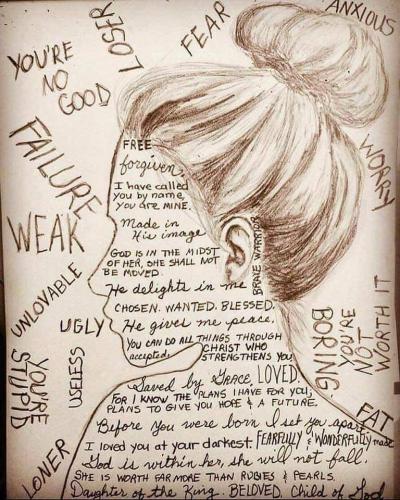 LOSER
FEAR
ANXIOUS
YOU'RE
NO
GOOD
FAILURE
WORRY
WEAK
UNLOVABLE
UGLY
USELESS
YOU'RE
STUPID
LONER
BORING
YOU'RE
NOT
WORTH IT
FAT
FREE
forgiven.
I have called
you by name,
you are MINE.
Made in
His image
GOD IS IN THE MIDST
OF HER, SHE SHALL NOT
BE MOVED.
BRAVE WARRIOR
He delights in me
CHOSEN. WANTED. BLESSED.
He gives me peace.
YOU CAN DO ALL THINGS THROUGH
CHRIST WHO
accepted.
STRENGTHENS YOU
Saved by Grace, LOVED.
FOR I KNOW THE PLANS I HAVE FOR YOU,
PLANS TO GIVE YOU HOPE & A FUTURE.
Before you were born I set you apart
I loved you at your darkest. FEARFULLY & WONDERFULLY made
God is within her, she will not fall.
SHE IS WORTH FAR MORE THAN RUBIES & PEARLS.
Daughter of the King. BELOVED. Child of God